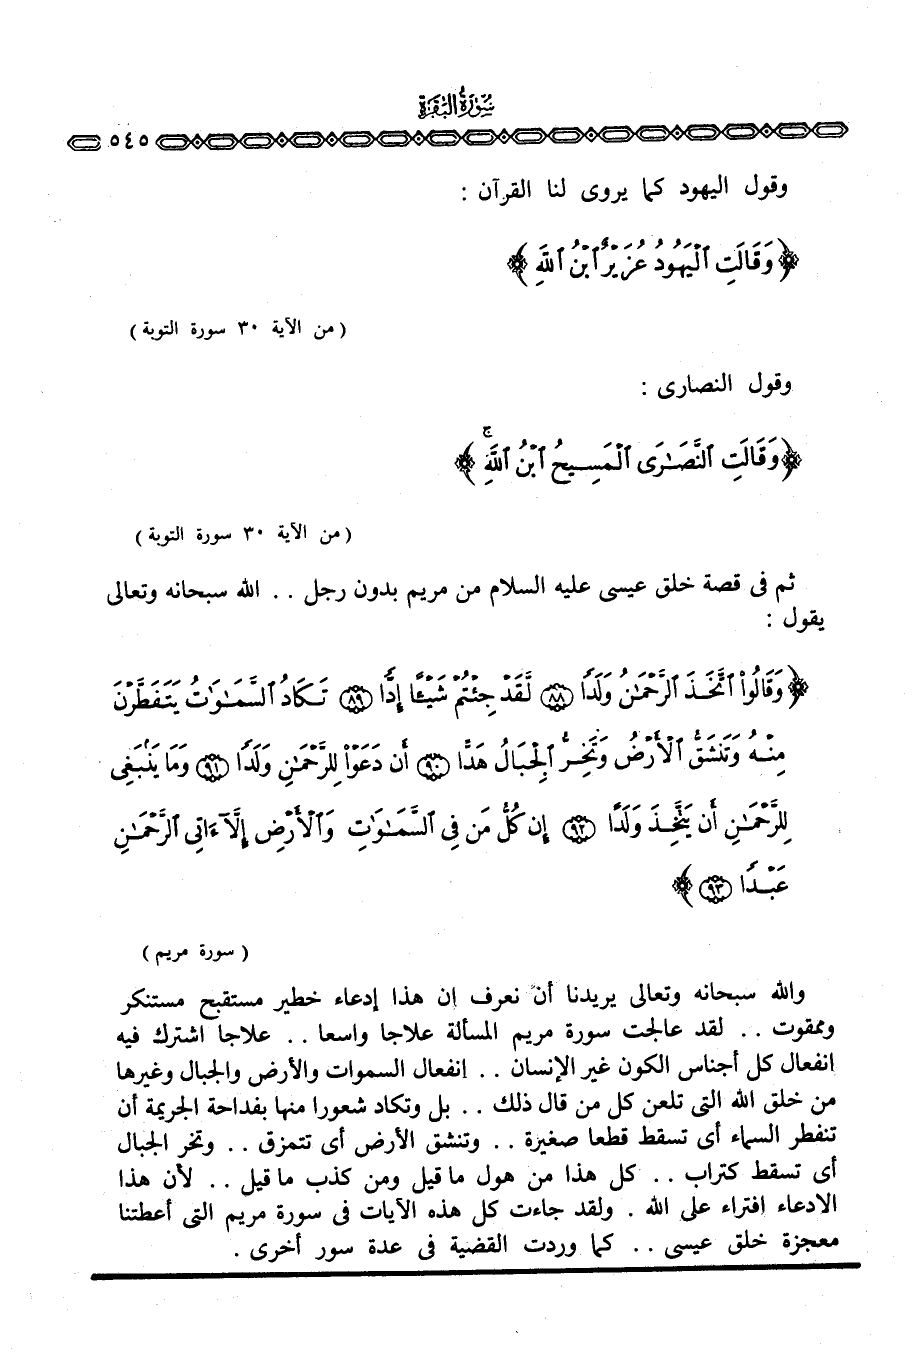 سورة البقرة
٥٤٥
وقول اليهود كما يروى لنا القرآن :
﴿ وَقَالَتِ ٱلْيَهُودُ عُزَيْرٌ ٱبْنُ ٱللَّهِ ﴾
( من الآية ٣٠ سورة التوبة )
وقول النصارى :
﴿ وَقَالَتِ ٱلنَّصَٰرَى ٱلْمَسِيحُ ٱبْنُ ٱللَّهِ ۚ ﴾
( من الآية ٣٠ سورة التوبة )
ثم فى قصة خلق عيسى عليه السلام من مريم بدون رجل . . الله سبحانه وتعالى
يقول :
﴿ وَقَالُوا۟ ٱتَّخَذَ ٱلرَّحْمَٰنُ وَلَدًا ٨٨ لَّقَدْ جِئْتُمْ شَيْـًٔا إِدًّا ٨٩ تَكَادُ ٱلسَّمَٰوَٰتُ يَتَفَطَّرْنَ
مِنْهُ وَتَنشَقُّ ٱلْأَرْضُ وَتَخِرُّ ٱلْجِبَالُ هَدًّا ٩٠ أَن دَعَوْا۟ لِلرَّحْمَٰنِ وَلَدًا ٩١ وَمَا يَنۢبَغِى
لِلرَّحْمَٰنِ أَن يَتَّخِذَ وَلَدًا ٩٢ إِن كُلُّ مَن فِى ٱلسَّمَٰوَٰتِ وَٱلْأَرْضِ إِلَّآ ءَاتِى ٱلرَّحْمَٰنِ
عَبْدًا ٩٣ ﴾
( سورة مريم )
والله سبحانه وتعالى يريدنا أن نعرف إن هذا إدعاء خطير مستقبح مستنكر
وممقوت . . لقد عالجت سورة مريم المسألة علاجا واسعا . . علاجا اشترك فيه
انفعال كل أجناس الكون غير الإنسان . . انفعال السموات والأرض والجبال وغيرها
من خلق الله التى تلعن كل من قال ذلك . . بل وتكاد شعورا منها بفداحة الجريمة أن
تنفطر السماء أى تسقط قطعا صغيرة . . وتنشق الأرض أى تتمزق . . وتخر الجبال
أى تسقط كتراب . . كل هذا من هول ما قيل ومن كذب ما قيل . . لأن هذا
الادعاء افتراء على الله . ولقد جاءت كل هذه الآيات فى سورة مريم التى أعطتنا
معجزة خلق عيسى . . كما وردت القضية فى عدة سور أخرى .